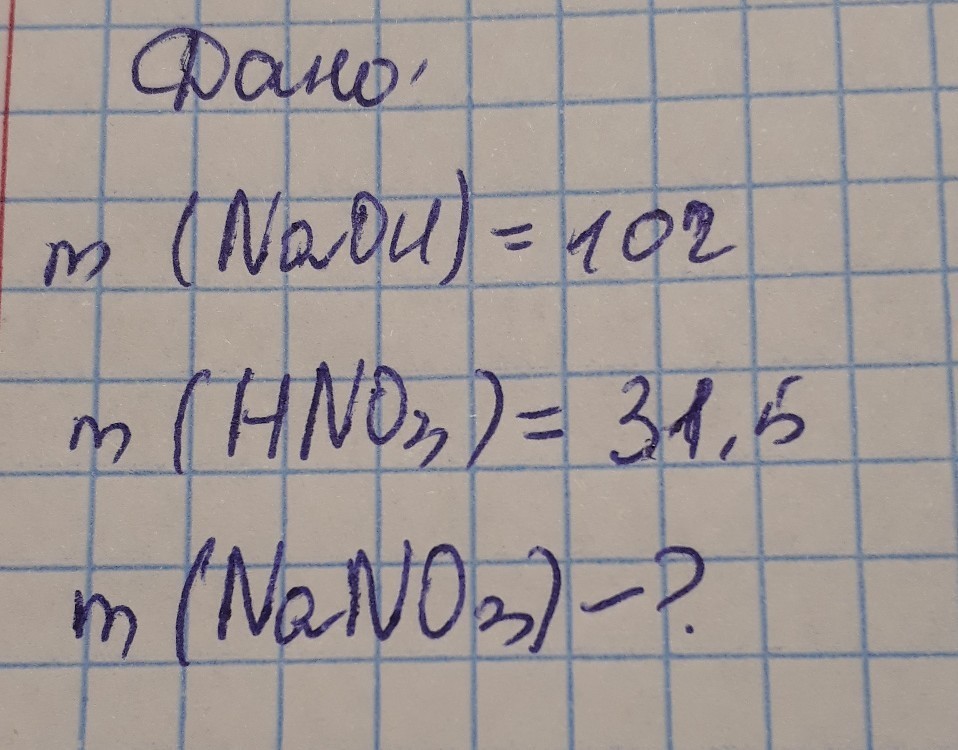 Дано:
m (NaOH) = 10г
m (HNO₃) = 31,5
m (NaNO₃) - ?